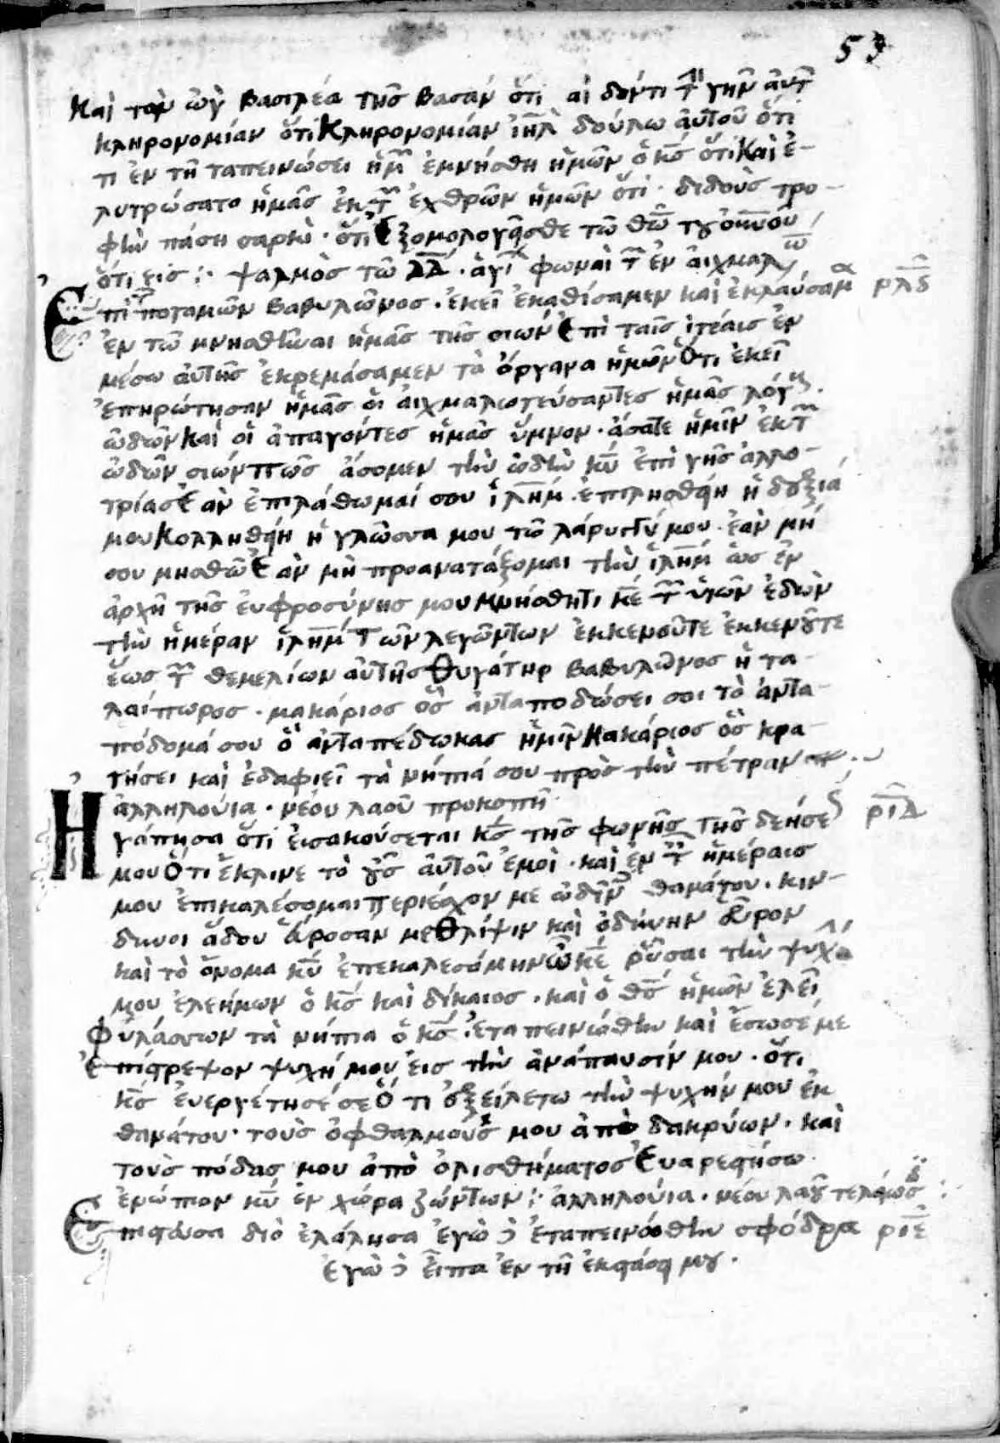 53
Καὶ τὸν ὢγ βασιλέα τῆς βασάν ὅτι αἱ δόντι τ γῆν αὐτ
κληρονομίαν ὅτι Κληρονομίαν ἰηλ δούλω αὐτοῦ ὅτι
τι ἐν τῆ ταπεινώσει ἡμ ἐμνήσθη ἡμῶν ὁ κς ὅτι Καὶ ἐ-
λυτρώσατο ἡμᾶς ἐκ τ ἐχθρῶν ἡμῶν ὅτι · διδοὺς τρο-
φὴν πάση σαρκὶ · ὅτι Ἐξομολογεῖσθε τῶ θῶ τοῦ οὐνου
ὅτι εἰς : ψαλμὸς τῶ δαδ · ἁγί φωναὶ τ ἐν αἰχμαλω
Ἐπὶ τ ποταμῶν βαβυλῶνος · ἐκεῖ ἐκαθίσαμεν καὶ ἐκλαύσαμ ρλς
ἐν τῶ μνησθῆναι ἡμᾶς τῆς σιών Ἐπὶ ταῖς ἰτέαις ἐν
μέσω αὐτῆς ἐκρεμάσαμεν τὰ ὄργανα ἡμῶν Ὅτι ἐκεῖ
ἐπηρώτησαν ἡμᾶς οἱ αἰχμαλωτεύσαντες ἡμᾶς λόγ
ὠδῶν Καὶ οἱ ἀπαγόντες ἡμᾶς ὕμνον · ἄσατε ἡμῖν ἐκ τ
ὠδῶν σιών πῶς ἄσομεν τὴν ὠδὴν κυ ἐπὶ γῆς ἀλλο-
τρίας Ἐὰν ἐπιλάθωμαί σου ἱλημ · ἐπιλησθείη ἡ δεξιά
μου Κολληθείη ἡ γλῶσσα μου τῶ λάρυγγί μου · ἐὰν μή
σου μνησθῶ Ἐὰν μὴ προανατάξομαι τὴν ἱλημ ὡς ἐν
ἀρχῆ τῆς εὐφροσύνης μου Μνήσθητι κε τ υἱῶν ἐδὼμ
τὴν ἡμέραν ἱλημ Τῶν λεγόντων ἐκκενοῦτε ἐκκενοῦτε
ἕως τ θεμελίων αὐτῆς Θυγάτηρ βαβυλῶνος ἡ τα-
λαίπωρος · μακάριος ὃς ἀνταποδώσει σοι τὸ ἀντα-
πόδομά σου ὃ ἀνταπέδωκας ἡμῖν Μακάριος ὃς κρα-
τήσει καὶ ἐδαφιεῖ τὰ νήπιά σου πρὸς τὴν πέτραν
ἀλληλούια · νέου λαοῦ προκοπῆ ριδ
Ἠγάπησα ὅτι εἰσακούσεται κς τῆς φωνῆς τῆς δεήσε
μου Ὅτι ἔκλινε τὸ οὖς αὐτοῦ ἐμοὶ · καὶ ἐν τ ἡμέραις
μου ἐπικαλέσομαι Περιέσχον με ὠδῖν θανάτου · κιν-
δυνοι ἅδου εὕροσαν με Θλίψιν καὶ ὀδύνην εὗρον
καὶ τὸ ὄνομα κυ ἐπεκαλεσάμην Ὦ κε ῥῦσαι τὴν ψυχ
μου ἐλεήμων ὁ κς καὶ δίκαιος · καὶ ὁ θς ἡμῶν ἐλεεῖ
Φυλάσσων τὰ νήπια ὁ κς · ἐταπεινώθην καὶ ἔσωσέ με
Ἐπίστρεψον ψυχή μου εἰς τὴν ἀνάπαυσίν μου · ὅτι
κς εὐεργέτησέ σε Ὅτι ἐξείλετω τὴν ψυχήν μου ἐκ
θανάτου · τοὺς ὀφθαλμούς μου ἀπὸ δακρύων · καὶ
τοὺς πόδας μου ἀπὸ ὀλισθήματος Εὐαρεστήσω
ἐνώπιον κυ ἐν χώρα ζώντων : ἀλληλούια · νέου λαοῦ τελείως :
Ἐπίστευσα διὸ ἐλάλησα ἐγὼ δὲ ἐταπεινώθην σφόδρα ριε
ἐγὼ δὲ εἶπα ἐν τῆ ἐκστάσει μου ·